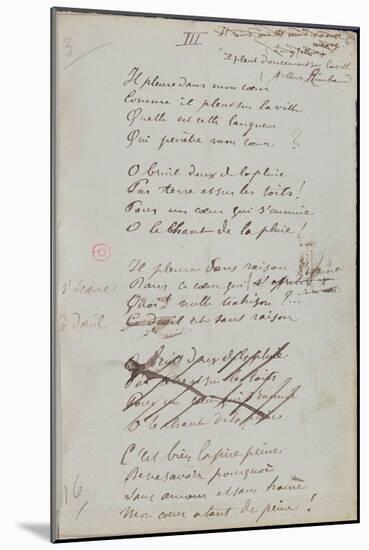 3
III
It rains and the wind is never
weary
Longfellow
il pleut doucement sur la ville
(Arthur Rimbaud)
Il pleure dans mon cœur
Comme il pleut sur la ville
Quelle est cette langueur
Qui pénètre mon cœur ?
O bruit doux de la pluie
Par terre et sur les toits !
Pour un cœur qui s'ennuie
O le chant de la pluie !
D
Il pleure sans raison
Dans ce cœur qui
s'écœure
Quoi ! nulle trahison ?...
Ce deuil est sans raison
le deuil
O bruit doux de la pluie
Par terre et sur les toits
Pour un cœur qui s'ennuie
O le chant de la pluie
C'est bien la pire peine
De ne savoir pourquoi
Sans amour et sans haine
Mon cœur a tant de peine !
16